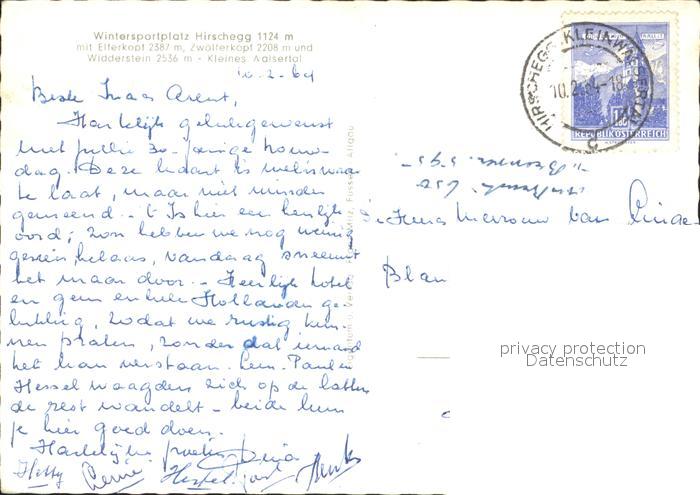 Wintersportplatz Hirschegg 1124 m
mit Elferkopf 2387 m, Zwölferkopf 2208 m und
Widderstein 2536 m - Kleines Walsertal
10-2-64
Beste Arent,
Hartelijk gelukgewenst
met jullie 30-jarige
dag. Deze kaart is weliswaar
te laat, maar niet minder
gemeend. - 't Is hier een heerlijk
oord; zon hebben we nog weinig
gezien, helaas, vandaag sneeuwt
het maar door. - Heerlijk hotel
en geen enkele Hollander ge-
lukkig, zodat we rustig kun-
nen praten, zonder dat iemand
het kan verstaan. Paul en
Hessel waagden zich op de latten
de rest wandelt - beide kun
je hier goed doen.
Hartelijke groeten
Hetty Hessel
HIRSCHEGG, KLEINWALSERTAL
10.2.64-18
REPUBLIK ÖSTERREICH
Mevrouw van
Blau
privacy protection
Datenschutz